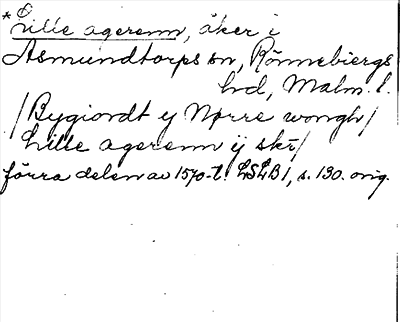 * Lille agerenn, åker i
Asmundtorps sn, Rönnebergs
hd, Malm. l.
/Bygiordt ij Nørre wongh/
Lille agerenn ij skr/
förra delen av 1570-t. LSLB1, s. 130. orig.